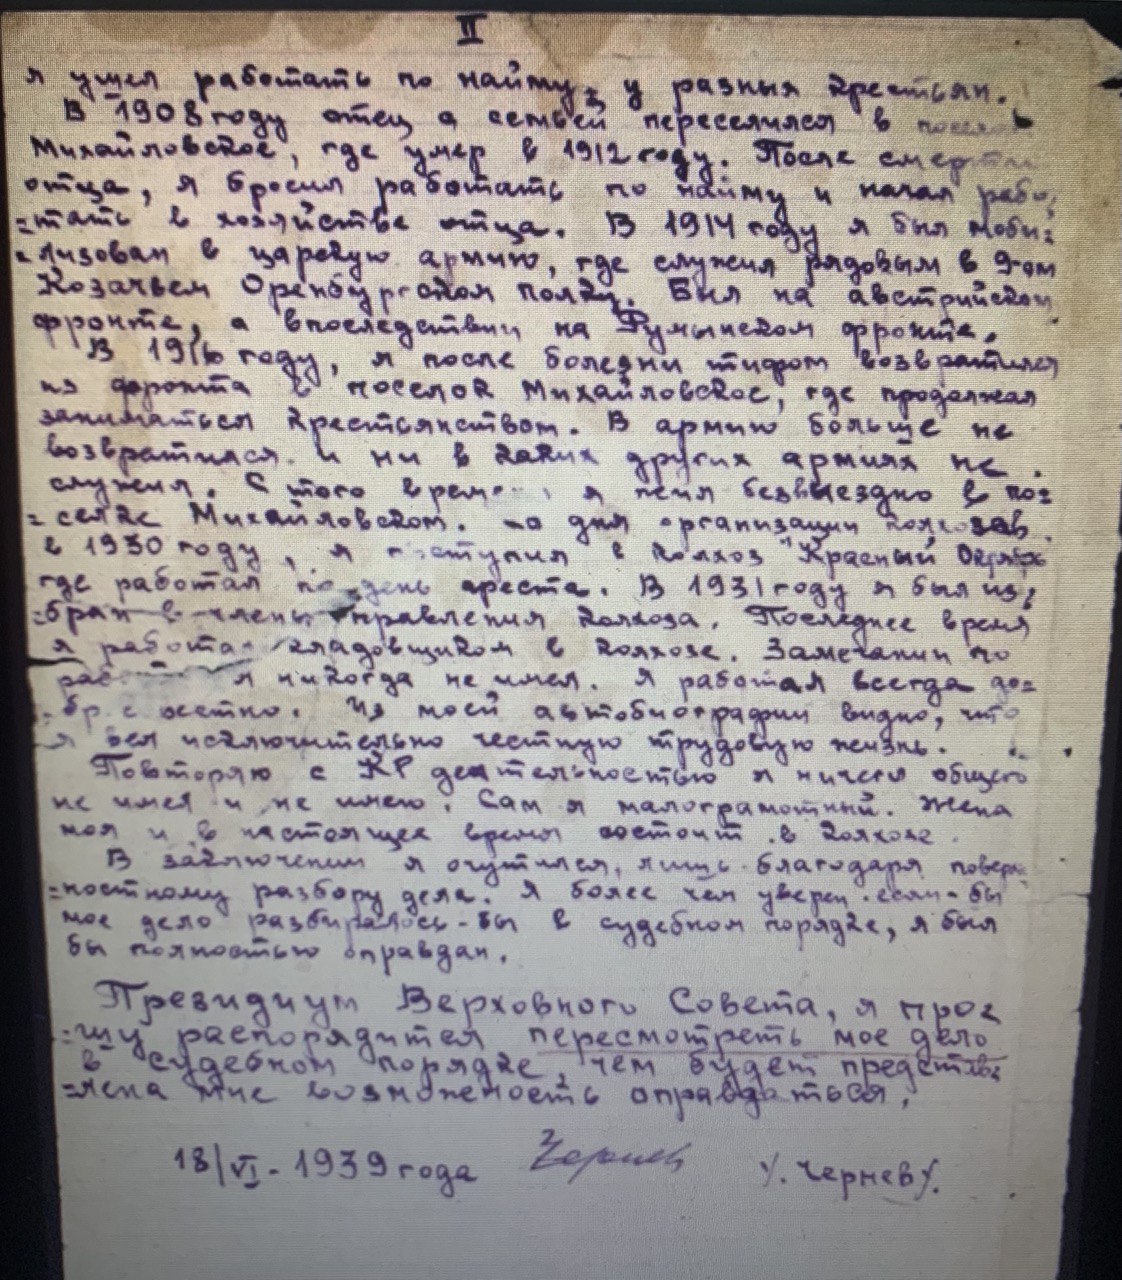 II
я ушел работать по найму, у разных крестьян.
В 1908 году отец с семьей переселился в поселок
Михайловское, где умер в 1912 году. После смерти
отца, я бросил работать по найму и начал рабо,
=тать в хозяйстве отца. В 1914 году я был моби=
=лизован в царскую армию, где служил рядовым в 9-ом
Козачьем Оренбургском полку. Был на австрийском
фронте, а впоследствии на Румынском фронте.
В 1916 году, я после болезни тифом возвратился
из фронта в поселок Михайловское, где продолжал
заниматься крестьянством. В армию больше не
возвратился и ни в каких других армиях не
служил. С того времени я жил безвыездно в по=
=селке Михайловском. дня организации колхозов
в 1930 году, я поступил в колхоз "Красный Октябрь
где работал по день ареста. В 1931 году я был из=
=бран в члены правления колхоза. Последнее время
я работал кладовщиком в колхозе. Замечании по
работе я никогда не имел. Я работал всегда до=
=бр с естно. Из моей автобиографии видно, что
я вел исключительно честную трудовую жизнь.
Повторяю с КР деятельностью я ничего общего
не имел и не имею. Сам я малограмотный. Жена
моя и в настоящее время состоит в колхозе.
В заключении я очутился, лишь благодаря поверх
=ностному разбору дела. Я более чем уверен если-бы
мое дело разбиралось-бы в судебном порядке, я был
бы полностью оправдан.
Президиум Верховного Совета, я про=
=шу распорядится пересмотреть мое дело
в судебном порядке, чем будет представ=
=лена мне возможность оправдаться.
18/VI-1939 года Чернев /. Чернев/.